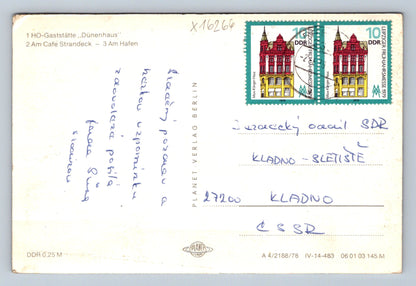 1 HO-Gaststätte „Dünenhaus"
2 Am Cafe Strandeck – 3 Am Hafen
X16264
10
DDR
10
DDR
LEIPZIGER FRÜHJAHRSMESSE 1979
Srdečný pozdrav a
hezkou vzpomínku
z dovolené posílá
PLANET VERLAG BERLIN
DDR
KLADNO - SLETIŠTĚ
27200 KLADNO
ČSSR
DDR 0,25 M
PLANET
A 4/2188/78 IV-14-483 06 01 03 145 M